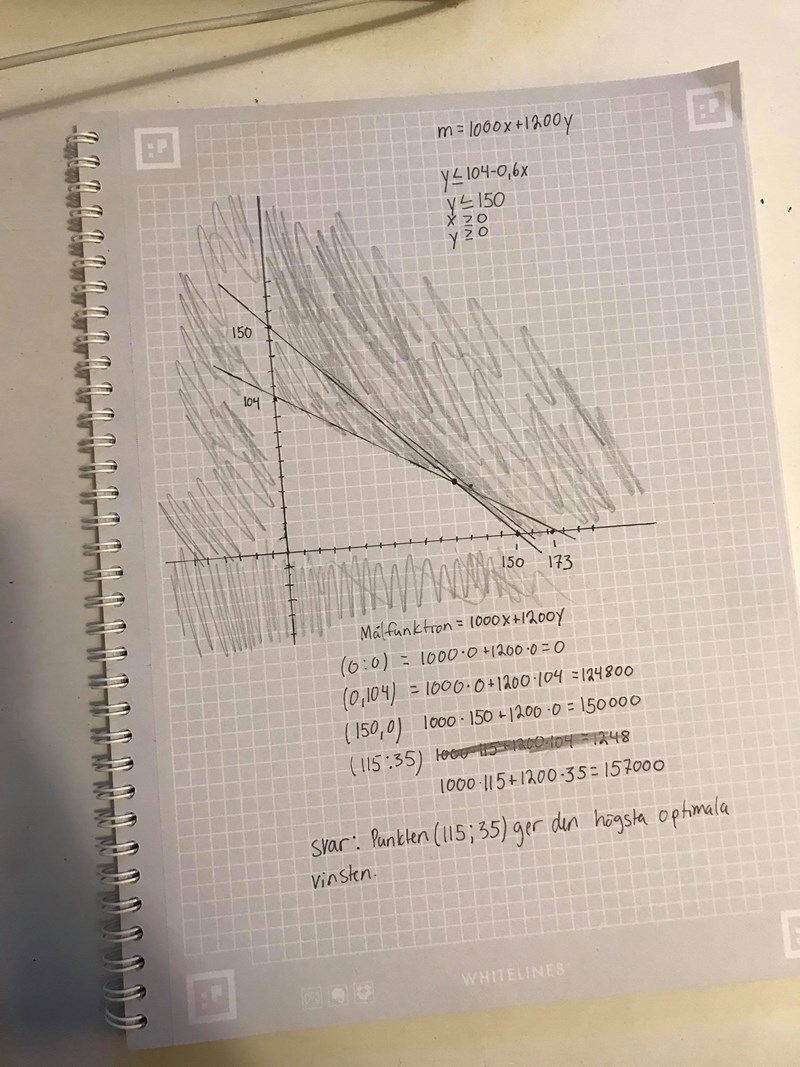 m=1000x+1200y
y≤104-0,6x
y≤150
x≥0
y≥0
150
104
150 173
Målfunktion=1000x+1200y
(0:0) = 1000·0+1200·0=0
(0,104) = 1000·0+1200·104=124800
(150,0) 1000·150+1200·0=150000
(115:35) 1000·115+1200·104=1248
1000·115+1200·35=157000
svar: Punkten (115;35) ger den högsta optimala
vinsten.
WHITELINES